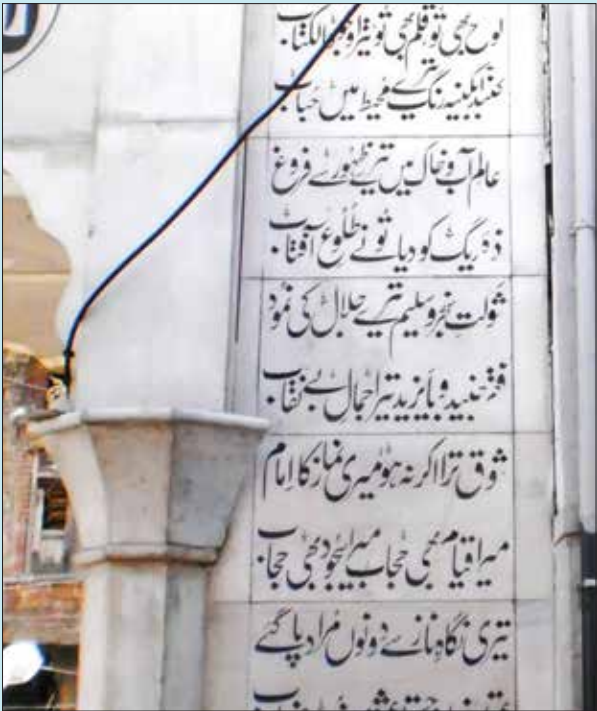 لوح بھی تو قلم بھی تو تیرا وجود الکتاب
گنبد آبگینہ رنگ تیرے محیط میں حباب
عالم آب و خاک میں تیرے ظہور سے فروغ
ذرہ ریگ کو دیا تو نے طلوع آفتاب
شوکتِ سنجر و سلیم تیرے جلال کی نمود
فقر جنید و بایزید تیرا جمال بے نقاب
شوق ترا اگر نہ ہو میری نماز کا امام
میرا قیام بھی حجاب میرا سجود بھی حجاب
تیری نگاہِ ناز سے دونوں مراد پا گئے